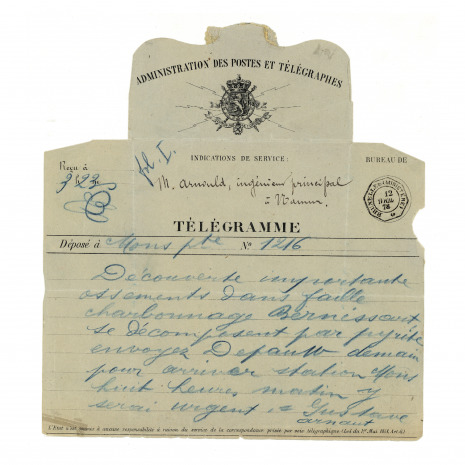 ADMINISTRATION DES POSTES ET TÉLÉGRAPHES
INDICATIONS DE SERVICE:
BUREAU DE
Reçu à
M. Arnould, ingénieur principal
à Namur.
12
TÉLÉGRAMME
Déposé à Mons pte Nº 1216
Découverte importante
ossements dans faille
charbonnage Bernissart
se décomposent par pyrite
envoyez Depauw demain
pour arriver station Mons
huit heures matin y
serai urgent = Gustave
arnaut
L'État n'est soumis à aucune responsabilité à raison du service de la correspondance privée par voie télégraphique